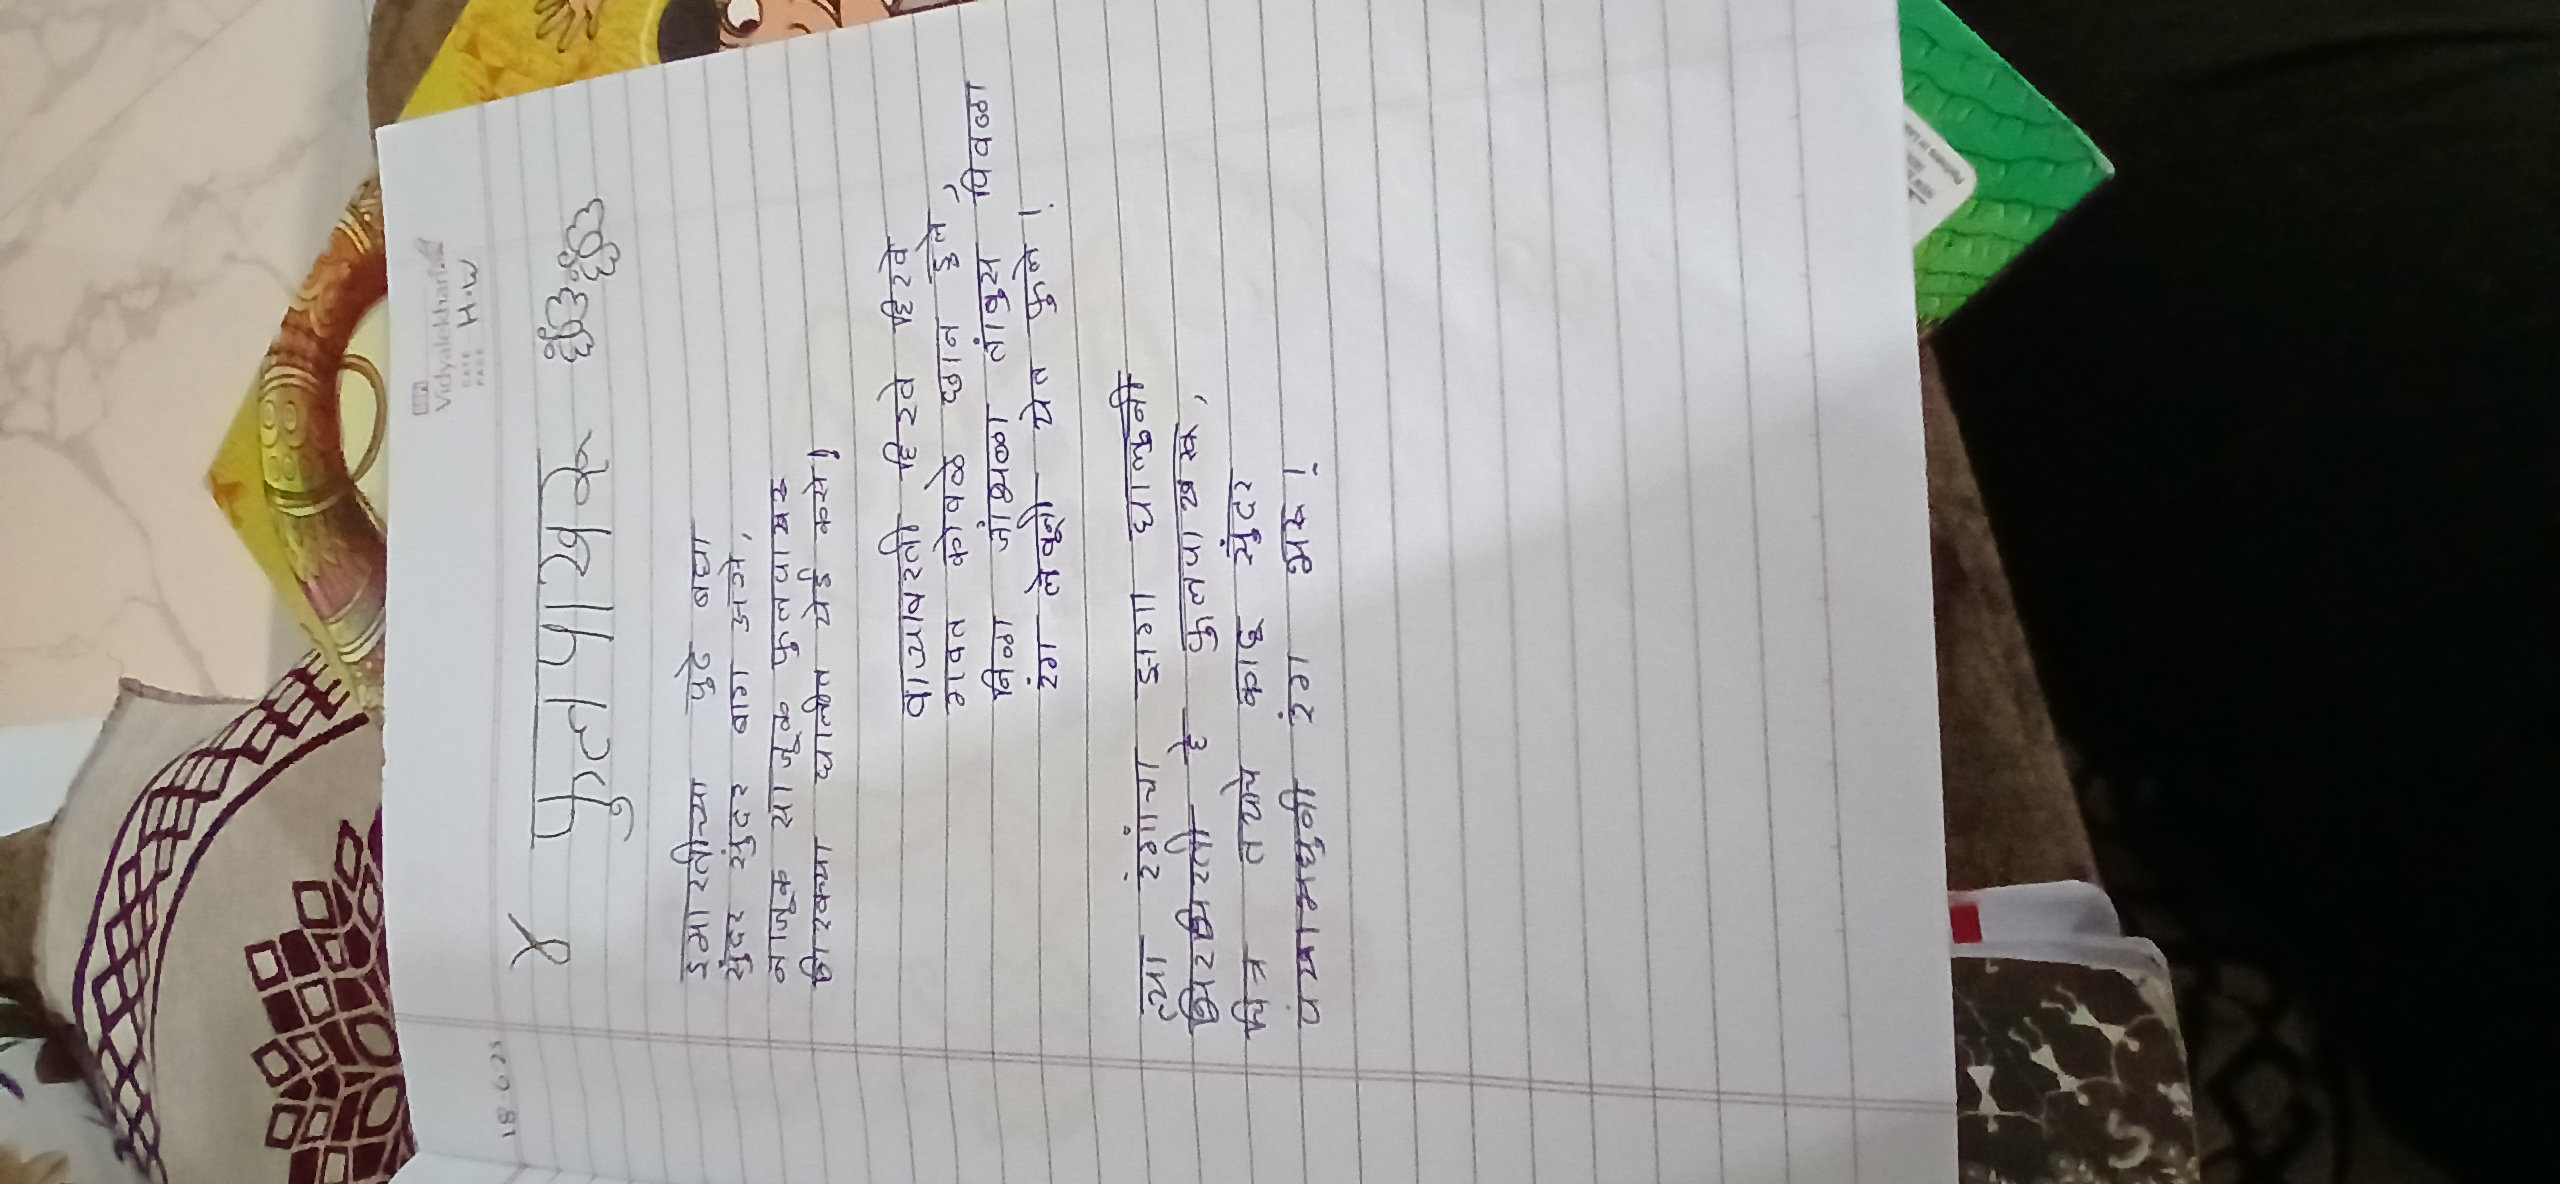 Vidyalekhan
DATE
PAGE
H.W
18.6.25
४ फुलपाखरू
इमारतीच्या पुढे बघा
सुंदर सुंदर बाग असे,
नाजूक साजूक फुलपाखरू
घालीत येई कसे!
वाऱ्यावरती हिरवे हिरवे
गवत कोवळे छान डुले,
निळा जांभळा तांबूस पिवळा
रंग लेवूनी येत फुले!
त्या रंगांचा झगा घालूनी
भिरभिरती हे फुलपाखरू,
चित्र तयाचे काढू सुंदर
पंखामधुनी रंग भरू!